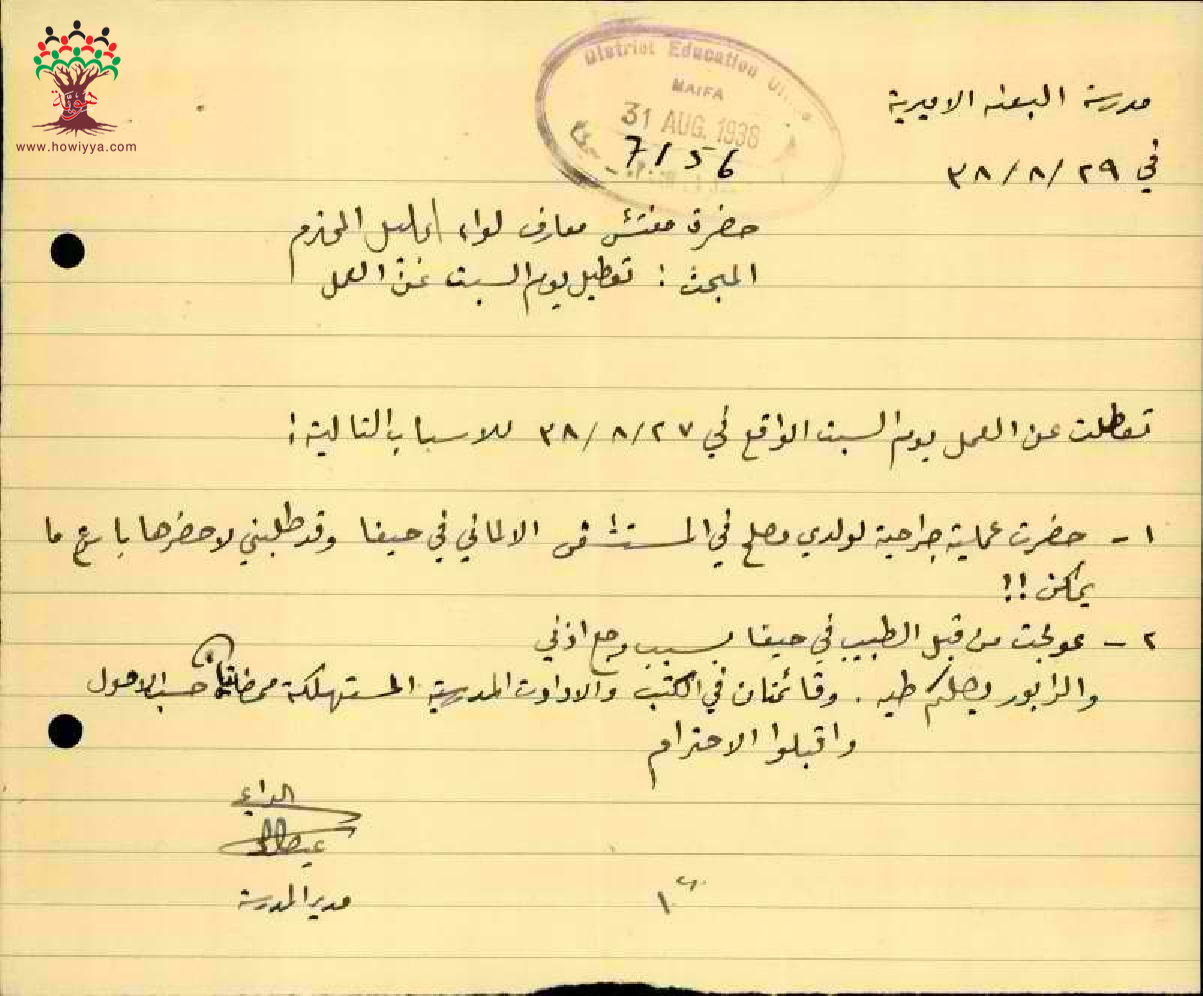 هوية
www.howiyya.com
District Education
HAIFA
31 AUG. 1938
7156
مدرسة البعنه الاميرية
في ٢٩/٨/٣٨
حضرة مفتش معارف لواء الجليل المحترم
المبحث : تعطيل يوم السبت عن العمل
تعطلت عن العمل يوم السبت الواقع في ٢٧/٨/٣٨ للاسباب التالية :
١ - حضرت عملية جراحية لولدي مصلح في المستشفى الالماني في حيفا وقد طلبني لاحضرها باسرع ما
يمكن !!
٢ - عولجت من قبل الطبيب في حيفا بسبب وجع اذني
والرابور يصلكم طيه . وقائمتان في الكتب والادوات المدرسية المستهلكة حسب الاصول
واقبلوا الاحترام
الداعي
مدير المدرسة